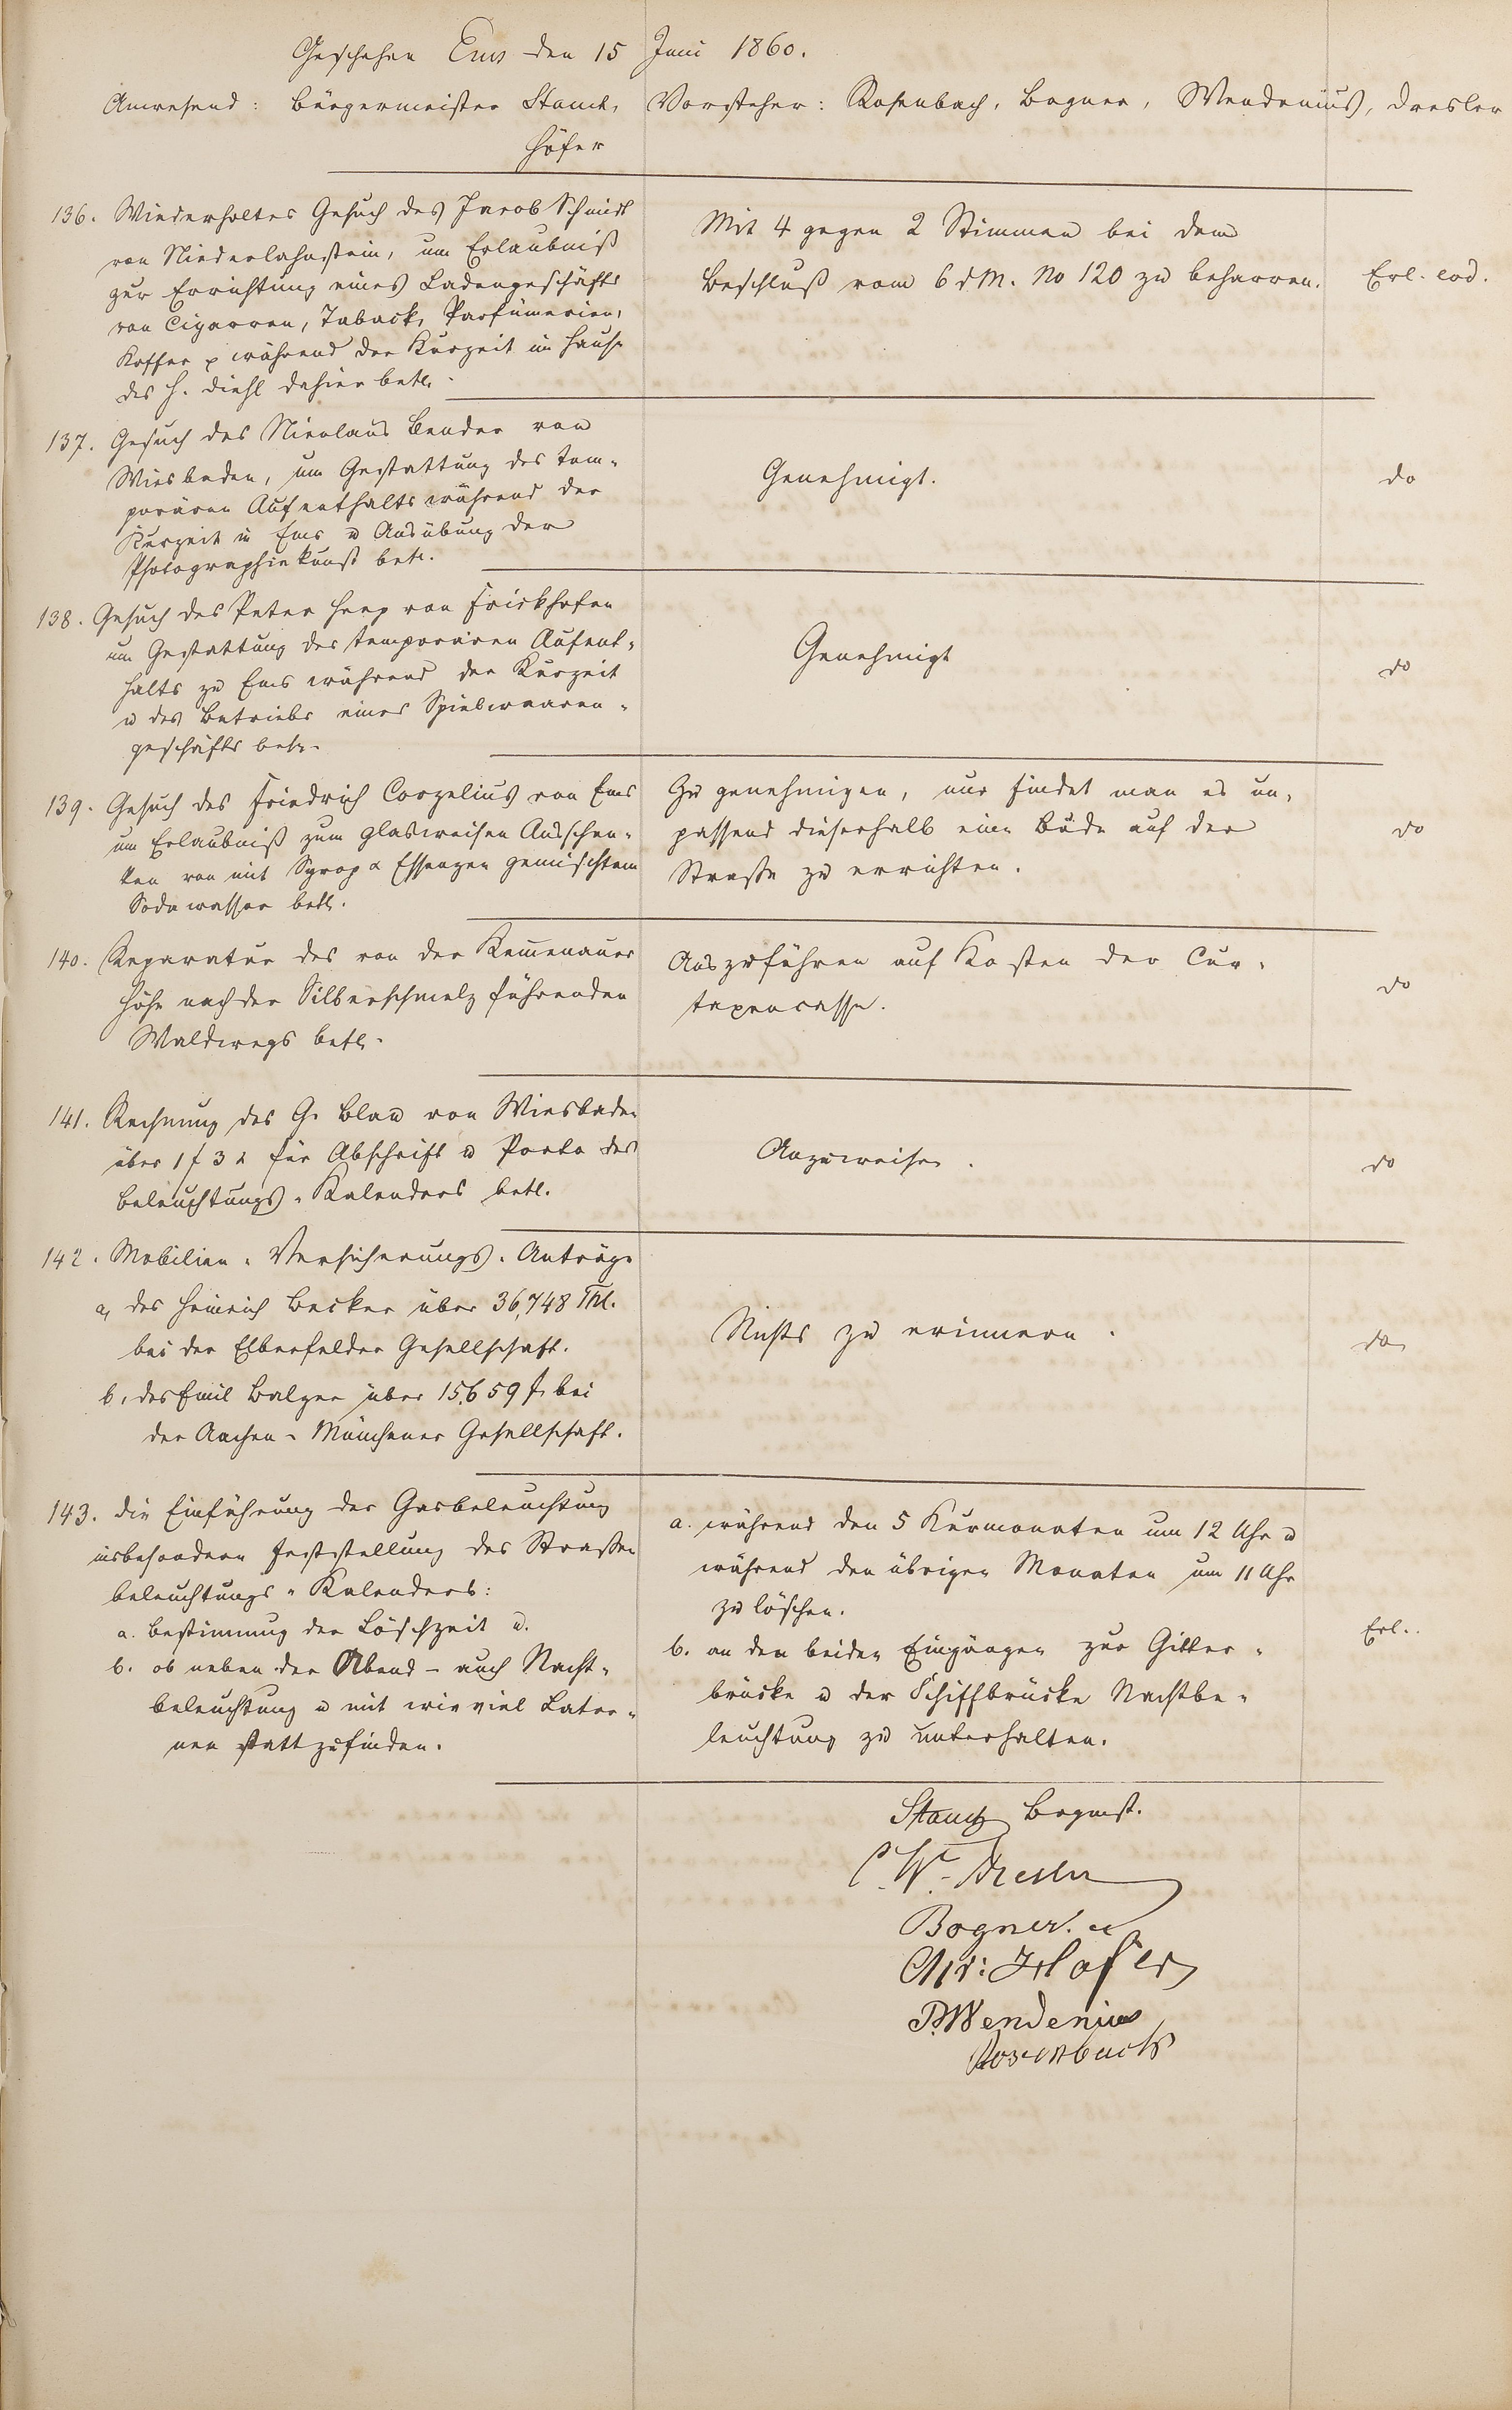 Geschehen Ems den 15 Juni 1860.
Anwesend: Bürgermeister Stamch, Vorsteher: Rosenbach, Bogner, Wendenius, Dresler
Höfer
136. Wiederholtes Gesuch des Jacob Schmidt
von Niederlahnstein, um Erlaubniß
zur Errichtung eines Ladengeschäfts
von Cigarren, Taback, Parfümerien,
Koffer p während der Kurzeit im Hause
des H. Diehl dahier betr.
Mit 4 gegen 2 Stimmen bei dem
Beschluß vom 6 d M. No 120 zu beharren.
Erl. eod.
137. Gesuch des Nicolaus Bender von
Wiesbaden, um Gestattung des tem-
porären Aufenthalts während der
Kurzeit in Ems u Ausübung der
Photographiekunst betr.
Genehmigt.
do
138. Gesuch des Peter Heep von Frickhofen
um Gestattung des temporären Aufent-
halts zu Ems während der Kurzeit
u des Betriebs eines Spielwaaren-
geschäfts betr.
Genehmigt
do
139. Gesuch des Friedrich Corzelius von Ems
um Erlaubniß zum glasweisen Ausschen-
ken von mit Syrop & Essenzen gemischtem
Sodawasser betr.
Zu genehmigen, nur findet man es un-
passend dieserhalb eine Bude auf der
Straße zu errichten.
do
140. Reparatur des von der Kemenauer
Höhe nach der Silberschmelz führenden
Waldwegs betr.
Auszuführen auf Kosten der Cur-
taxencasse.
do
141. Rechnung des G. Blau von Wiesbaden
über 1 f 32 für Abschrift u Porto des
Beleuchtungs-Kalenders betr.
Anzuweisen.
do
142. Mobilien-Versicherungs-Anträge
a, des Heinrich Becker über 36,748 Thl.
bei der Elberfelder Gesellschaft.
b, des Emil Balzer über 15,659 f. bei
der Aachen-Münchener Gesellschaft.
Nichts zu erinnern.
do
143. Die Einführung der Gasbeleuchtung
insbesondere Feststellung des Straßen
beleuchtungs-Kalenders:
a. Bestimmung der Löschzeit u.
b. ob neben der Abend- auch Nacht-
beleuchtung u mit wie viel Later-
nen stattzufinden.
a. während den 5 Kurmonaten um 12 Uhr u
während den übrigen Monaten um 11 Uhr
zu löschen.
b. an den beiden Eingängen zur Gitter-
brücke u der Schiffbrücke Nachtbe-
leuchtung zu unterhalten.
Erl.
Bogmst.
C. W. Dresler
Bogner.
Chr: Höfer
P. Wendenius
Rosenbach